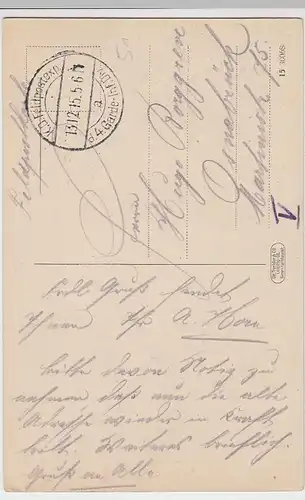 Feldpostkarte
K.D. Feldpostexp.
13.12.15. 5-6 N
a
d. 4. Garde-Inf. Div.
Herrn
Hugo Berggren
Osnabrück
Martinistr. 75.
V
15 10088
Frdl. Gruß sendet
Ihnen Ihr A. Horn
bitte davon Notiz zu
nehmen daß nun die alte
Adresse wieder in Kraft
tritt. Weiteres brieflich.
Gruß an Alle.